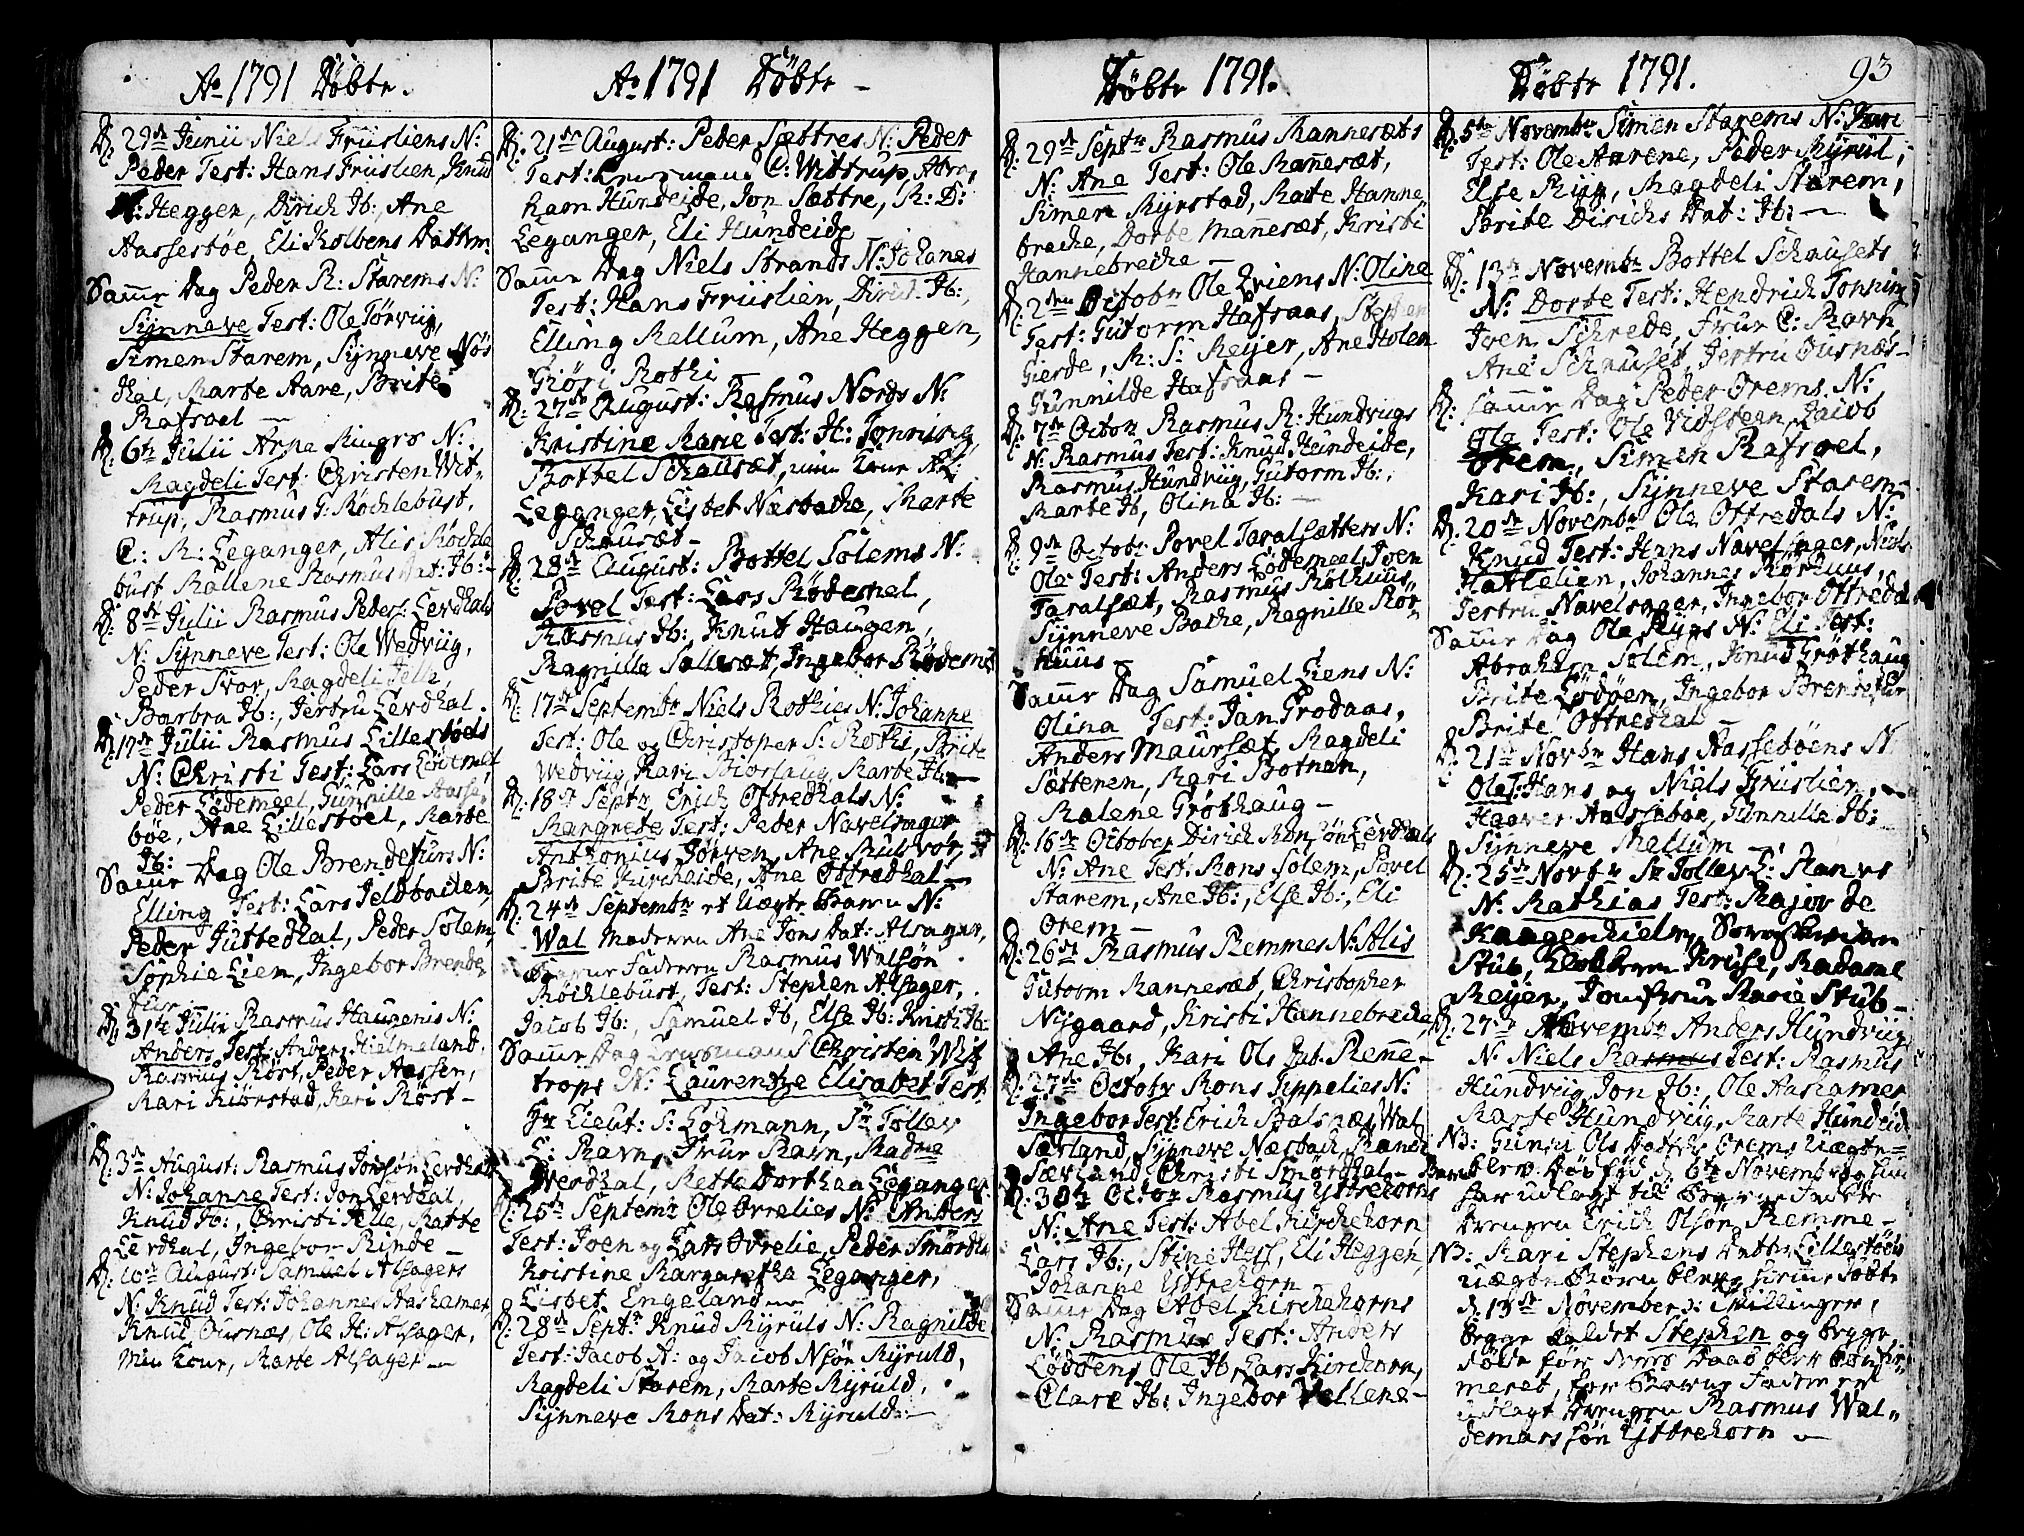 Ao 1791 Døbte.
D: 29de Junii Niels Friisliens N:
Peder Test: Hans Friislien, Knud
Heggen, Dirich Ib:, Ane
Aassestøe, Eli Kolbens Datter
Samme Dag Peder R: Starems N:
Synneve Test: Ole Tørviig,
Simen Starem, Synneve Nøs
dal, Marte Aare, Brite
Rafsoel —
D: 6te Julii Arne Mingrs N:
Magdeli Test: Christen Wit
trup, Rasmus G: Møchlebust,
C: R: Leganger, Alis Møchle
bust Mallene Rasmus Dat: Ib:
D: 8de Julii Rasmus Peders: Eerdhals
N: Synneve Test: Ole Wedviig,
Peder Svor, Magdeli Felle,
Barbra Ib:, Jertru Eerdhal
D: 17de Julii Rasmus Lillestøels
N: Christi Test: Lars Lødemel
Peder Lødemeel, Gunnille Aasse
bøe, Ane Lillestøel, Marte
Ib:
Samme Dag Ole Brendefurs N:
Elling Test: Lars Feldbaden,
Peder Huttedhal, Peder Solem,
Sophie Lien, Ingebor Brende
fur
D: 31te Julii Rasmus Haugenis N:
Anders Test: Anders Hielmeland,
Rasmus Røst, Peder Aassen,
Mari Kiørstad, Kari Røst —
D: 3de August: Rasmus Jonsøn Eerdhals
N: Johanne Test: Jon Eerdhal,
Knud Ib:, Christi Felle, Matte
Eerdhal, Ingebor Rinde —
D: 10de August: Samuel Alsagers
N: Knud Test: Johannes Aashamer
Knud Ousnæs, Ole H: Alsager,
Min Kone, Marte Alsager —
Ao 1791 Døbte —
D: 21de August: Peder Sættres N: Peder
Test: C: Wittrup, Abra
ham Hundeide, Jon Sættre, R: D:
Leganger, Eli Hundeide
Samme Dag Niels Strands N: Johanes
Test: Hans Friislien, Dirich Ib:,
Elling Mellum, Ane Heggen,
Giøri Rothi —
D: 27de August: Rasmus Nords N:
Kristine Marie Test: H: Tonning,
Bottel Schausæt, min Kone
Leganger, Lisbet Næsbache, Marte
Schausæt —
D: 28de August: Bottel Solems N:
Povel Test: Lars Rødemel,
Rasmus Ib:, Knut Haugen,
Magnille Sallesæt, Ingebor Rødemel
D: 17de Septembr Niels Rothies N: Johanne
Test: Ole og Christoper S: Rothi, Brite
Wedviig, Kari Biorhaug, Marte Ib: —
D: 18de Septr Erich Ottredhals N:
Margrete Test: Peder Navelsager
Anthonius Jørven, Ane Mulsvor,
Brite Kircheide, Ane Ottredhal —
D: 24de Septembr et Uægte Barn N:
Wal Moderen Ane Jons Dat: Alsager,
Faderen Rasmus Walsøn
Møchlebust, Test: Stephen Alsager,
Jacob Ib:, Samuel Ib, Else Ib: Kristi Ib:
Samme Dag Christen Wit
trops N: Laurentze Elisabet Test:
Hr Lieut: S: Lohmann, Sr Tolley
L: Ravn, Frue Ravn, Madme
Eerdhal, Mette Dorthea Leganger
D: 25de Septembr Ole Ovrelies N: Anders
Test: Joen og Lars Øvrelie, Peder Smørdhal
Kristine Margaretha Leganger,
Lisbet Engeland —
D: 28de Septr Knud Myruls N: Ragnilde
Test: Jacob A: og Jacob Nsøn Myruld,
Magdeli Starem, Marte Myruld,
Synneve Mons Dat: Myruld: —
Døbte 1791.
D: 29de Septr Rasmus Mannesæts
N: Ane Test: Ole Manesæt,
Simen Myrstad, Marte Hanne
breche, Dorte Manesæt, Kristi
Hannebreche —
D: 2den Octobr Ole Eriens N: Oline
Test: Gutorm Hafsaas, Stephen
Gierde, R: S: Meyer, Ane Holen
Gunnilde Hafsaas —
D: 7de Octobr Rasmus R: Hundviigs
N: Rasmus Test: Knud Hundeide,
Rasmus Hundviig, Gutorm Ib:,
Marte Ib, Olina Ib: —
D: 9de Octobr: Povel Taralsætters N:
Ole Test: Anders Lødemeel, Joen
Taralsæt, Rasmus Rørhuus,
Synneve Bache, Magnille Rør
huus —
Samme Dag Samuel Liens N:
Olina Test: Jan Grodaas,
Anders Maursæt, Magdeli
Sættenem, Mari Botnan,
Malene Grøthaug —
D: 16de October Dirich Monssøn Eerdhals
N: Ane Test: Mons Solem, Povel
Starem, Ane Ib:, Else Ib:, Eli
Orem —
D: 26de Rasmus Remmes N: Alis
Gutorm Mannesæt, Christopher
Nygaard, Kristi Hannebreche,
Ane Ib:, Kari Ols Dat. Reme —
D: 27de Octobr Mons Jippelies N:
Ingebor Test: Erich Balsnæs, Wal
Særland, Synneve Næsbach, Rande
Særland, Christi Smørdhal —
D: 30te Octobr Rasmus Ystrehorns
N: Ane Test: Abel Kirchehorn
Lars Ib:, Stine Hess, Eli Heggen,
Johanne Ystrehorn —
Samme Dag Abel Kirchehorns
N: Rasmus Test: Anders
Løddens, Ole Ib, Lars Kirchorn,
Clare Ib: Ingebor Vellene —
Døbte 1791. 93
D: 5te Novembr Simen Starems N: Kari
Test: Ole Aarene, Peder Myrul,
Else Myr, Magdeli Starem,
Brite Dirichs Dat: Ib: —
D: 13de Novembr Bottel Schausets
N: Dorte Test: Hendrich Tonning
Joen Schrede, Frue C: Ravn,
Ane Schauset, Jertru Ousnæs —
D: samme Dag Peder Orems N:
Ole Test: Ole Vidsteen, Jacob
Orem, Simen Rafsoel,
Kari Ib:, Synneve Starem —
D: 20de Novembr Ole Ottredals N:
Knud Test: Hans Navelsager, Niels
Hattelien, Johannes Rørhuus,
Jertru Navelsager, Ingebor Ottredal
Samme Dag Ole Myrs N: Eli Test:
Abraham Solem, Knud Grøthaug
Brite Lødøen, Ingebor Brendefur
Brite Ottredhal —
D: 21de Novbr Hans Aassebøens N:
Ole T: Hans og Niels Friislien,
Haaver Aassebøe, Gunnille Ib:
Synneve Mellum —
D: 25de Novbr Sr Tolley L: Ranes
N: Mathias Test: Major de
Kaagenhielm,
Stub, Kruse, Madame
Meyer, Jomfrue Marie Stub —
D: 27de Novembr Anders Hundviig
N: Niels Rasmus Test: Rasmus
Hundviig, Jon Ib:, Ole Aashamer
Marte Hundviig, Marte Hundeid
NB: Gunni Ols Datter Orems Uægte
blev død fød d: 6te Novembr, og hun
har udlagt til Barne Fader
Drengen Erich Olsøn Remme —
NB: Kari Stephens Datter Lillestøels
Uægte Børn blev hiemme døbt
d: 13de November: Tvillinger,
begge kaldet Stephen og begge
døde før deres Daab blev confir
meret, for Barne Fader er
udlagt Drengen Rasmus Wal
demarssøn Ystrehorn —